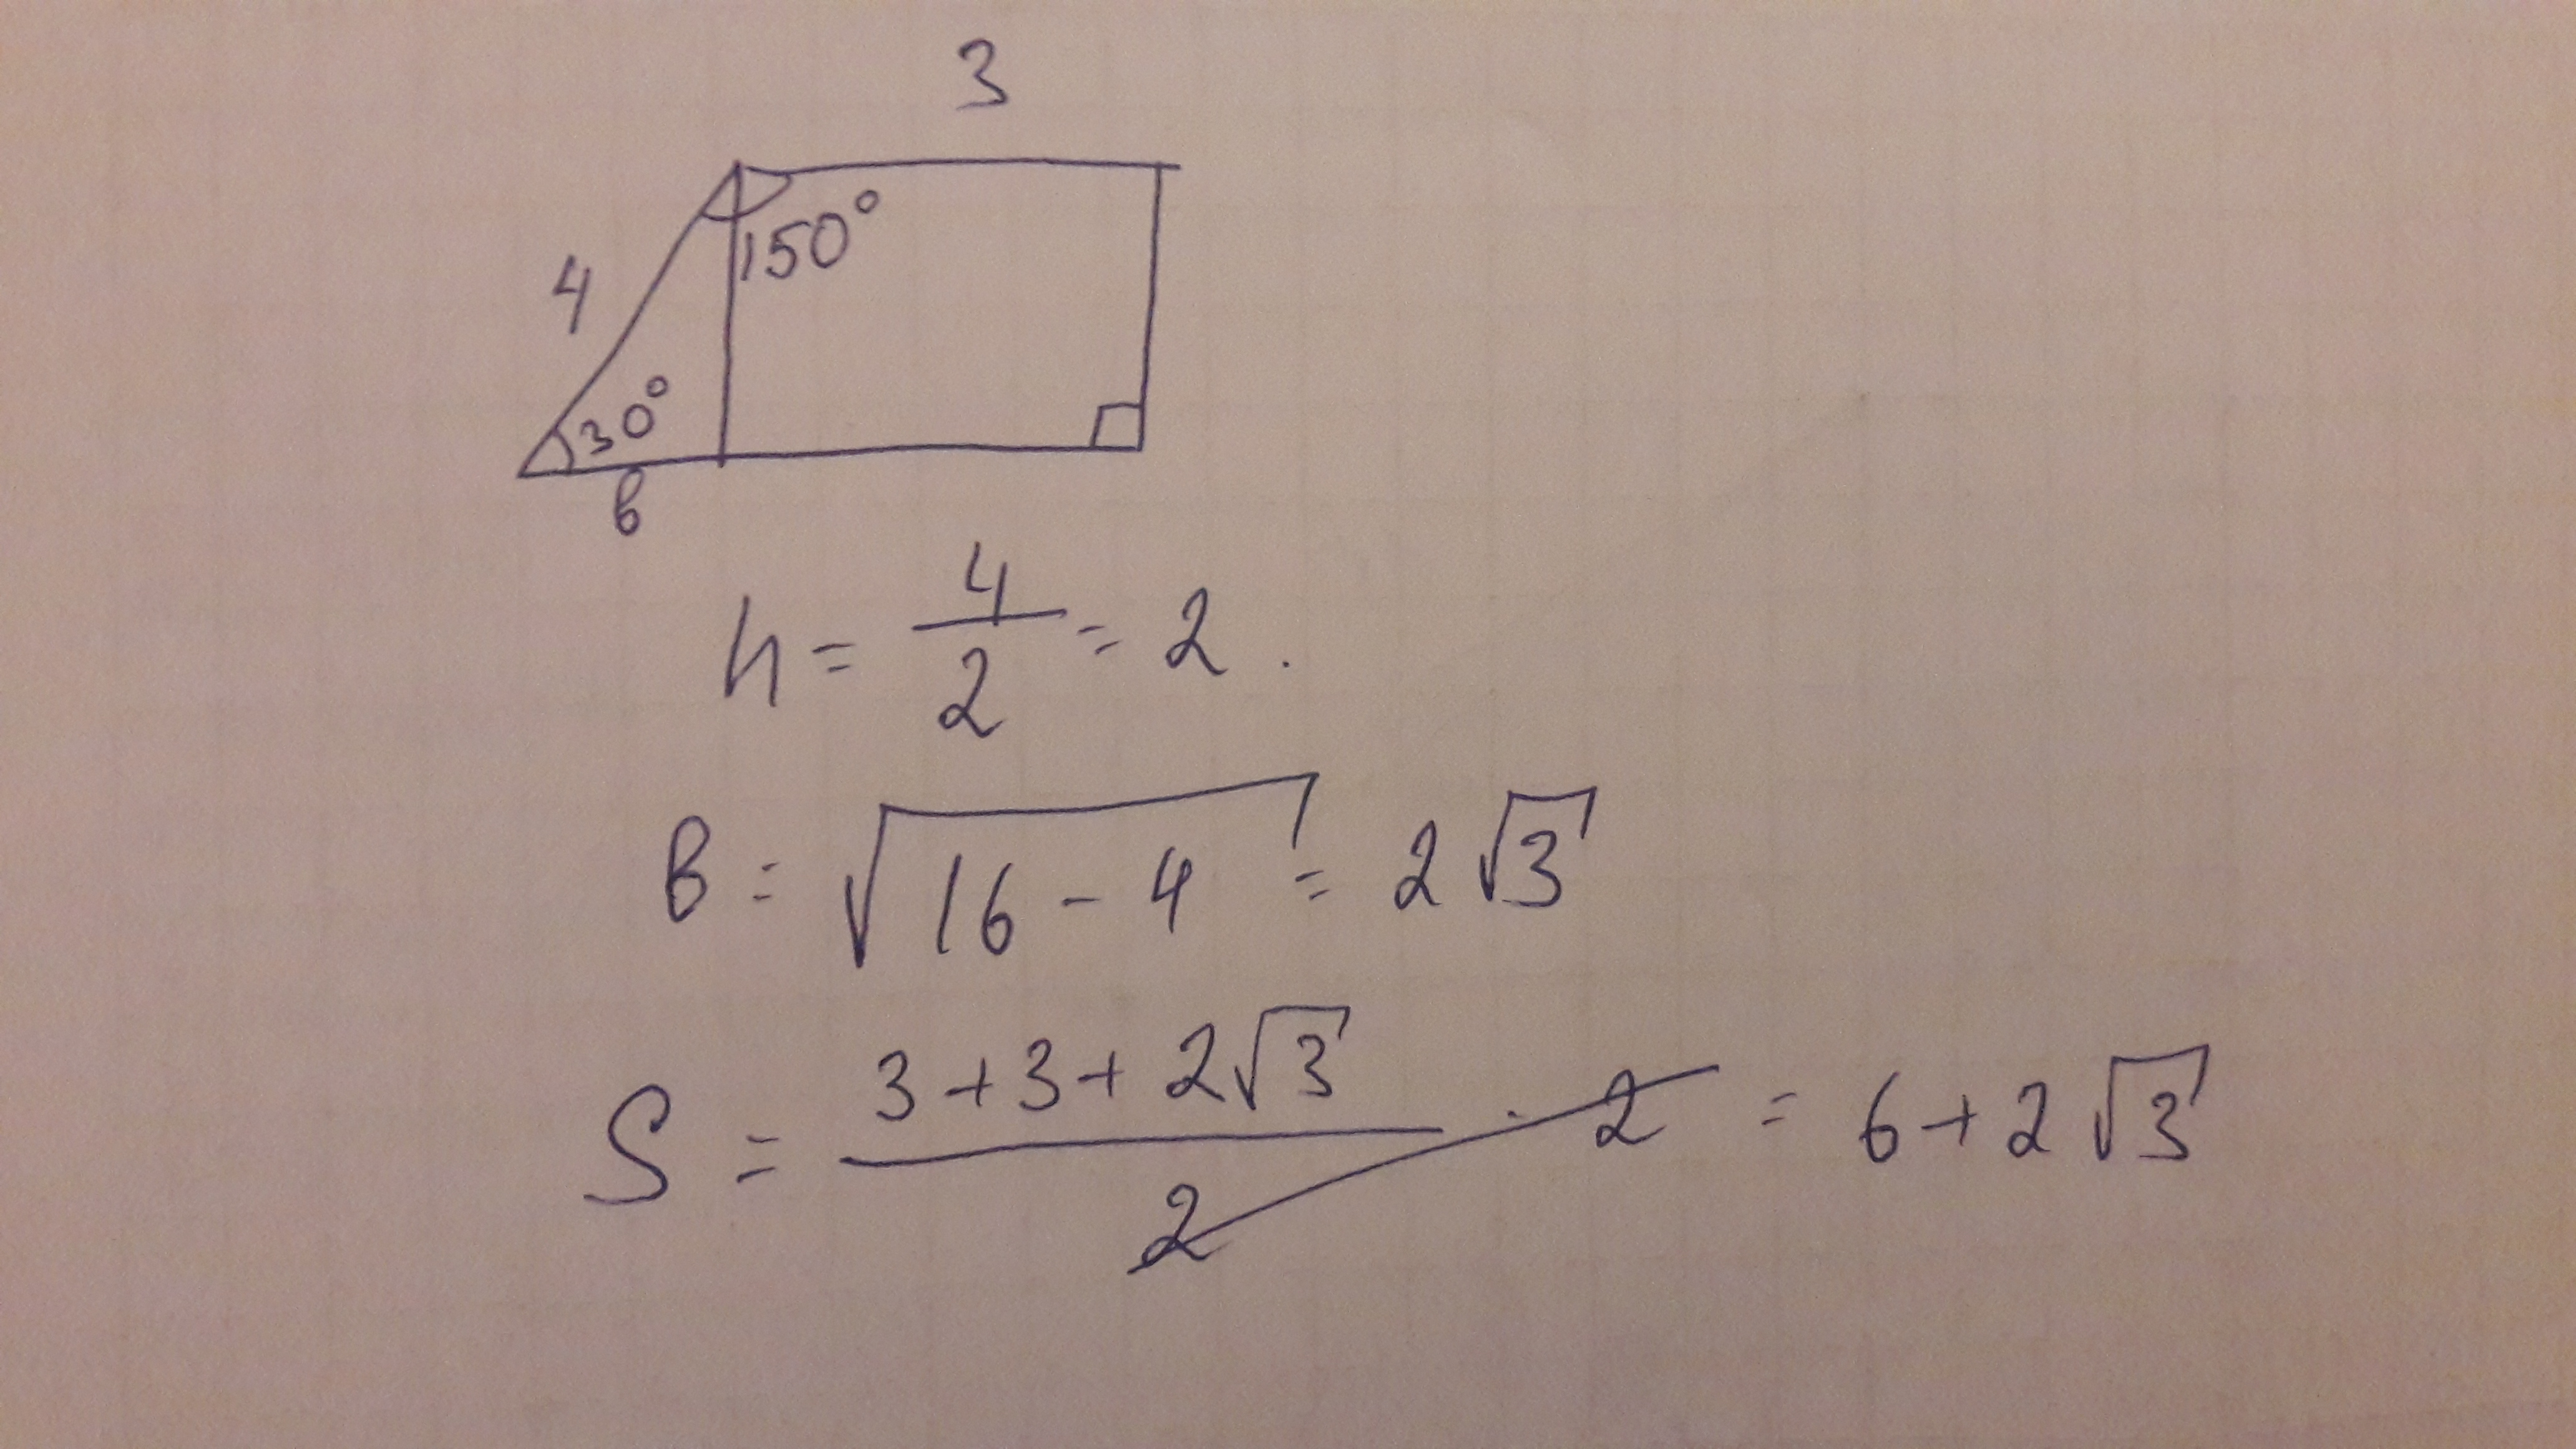 3
150°
4
30°
в
h = 4/2 = 2.
в = √(16 - 4) = 2√3
S = (3 + 3 + 2√3)/2 · 2 = 6 + 2√3